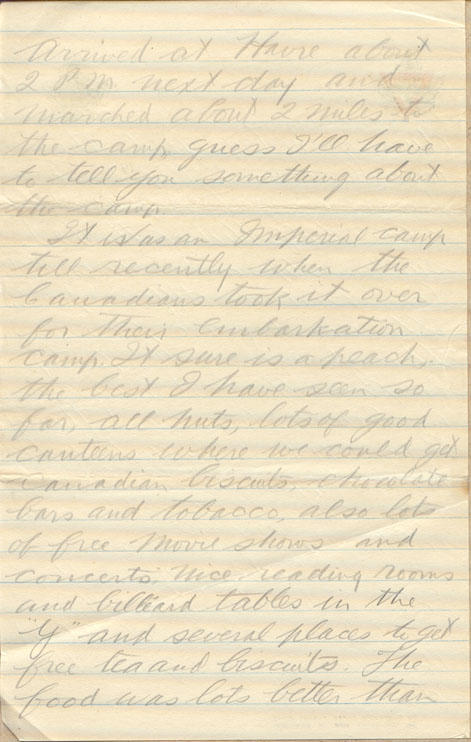 Arrived at Havre about
2 P.M. next day and
marched about 2 miles to
the camp, guess I'll have
to tell you something about
the camp
It was an Imperial camp
till recently when the
Canadians took it over
for their embarkation
camp. It sure is a peach,
the best I have seen so
far, all huts, lots of good
canteens where we could get
Canadian biscuits, chocolate
bars and tobacco, also lots
of free movie shows and
concerts, nice reading rooms
and billiard tables in the
"Y" and several places to get
free tea and biscuits. The
food was lots better than